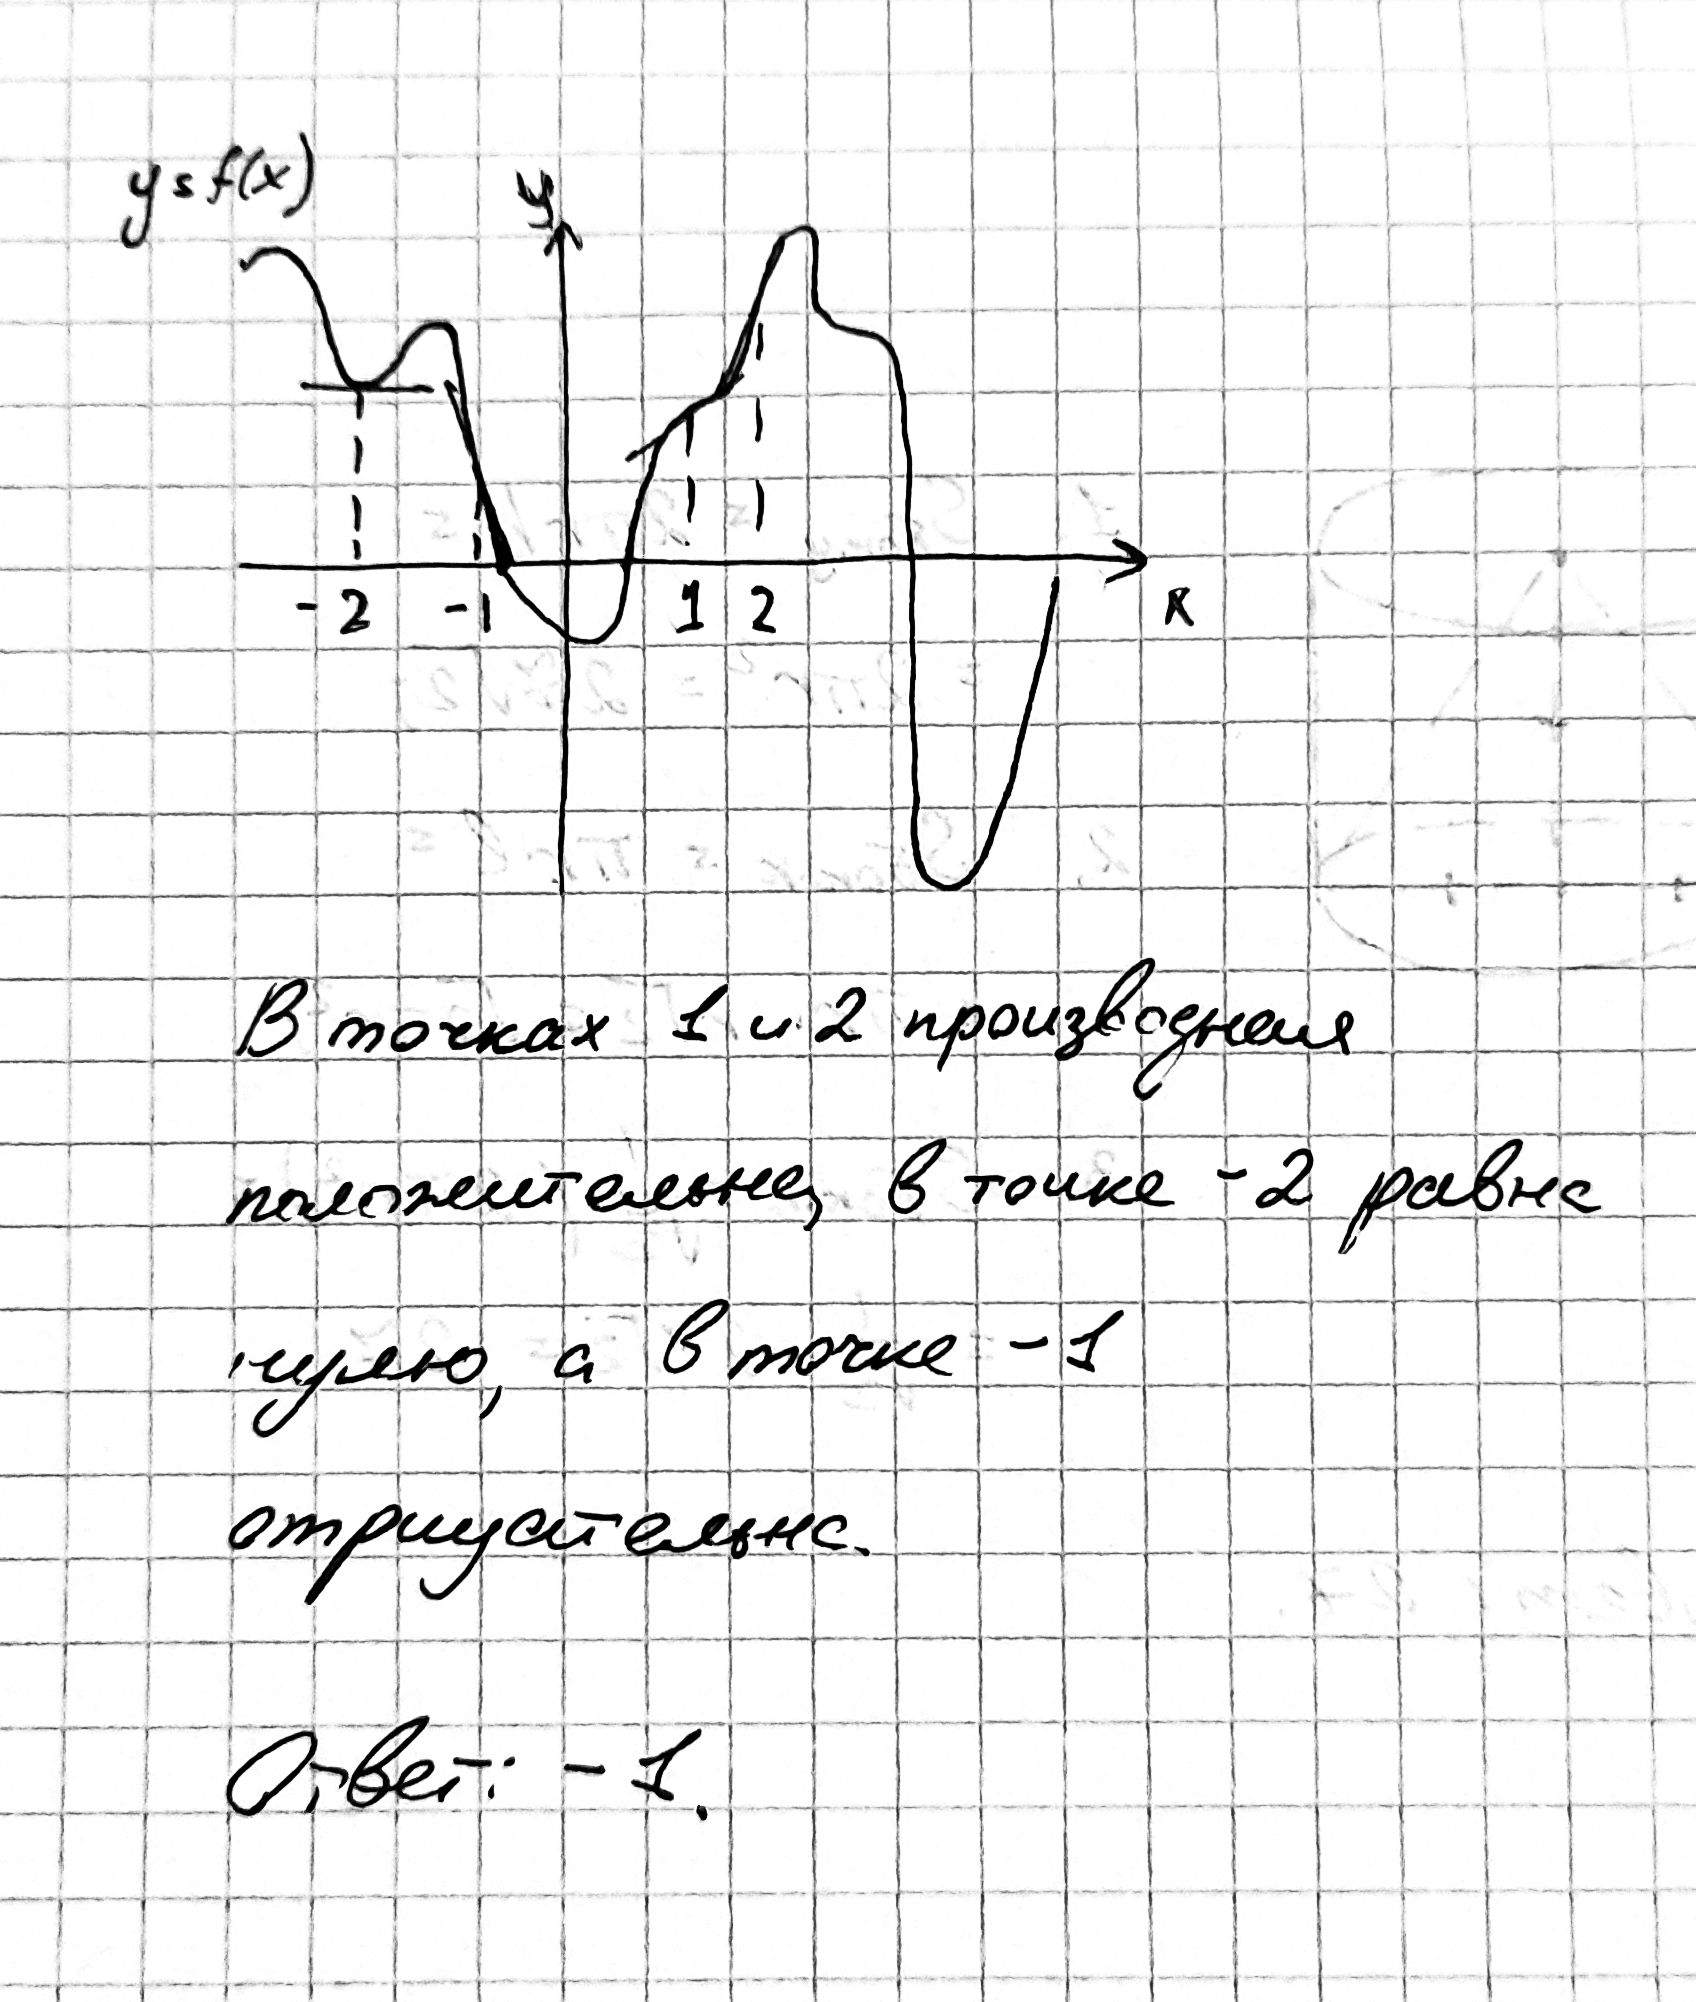 y = f(x)
y
-2 -1 1 2 x
В точках 1 и 2 производная
положительна, в точке -2 равна
нулю, а в точке -1
отрицательна.
Ответ: -1.